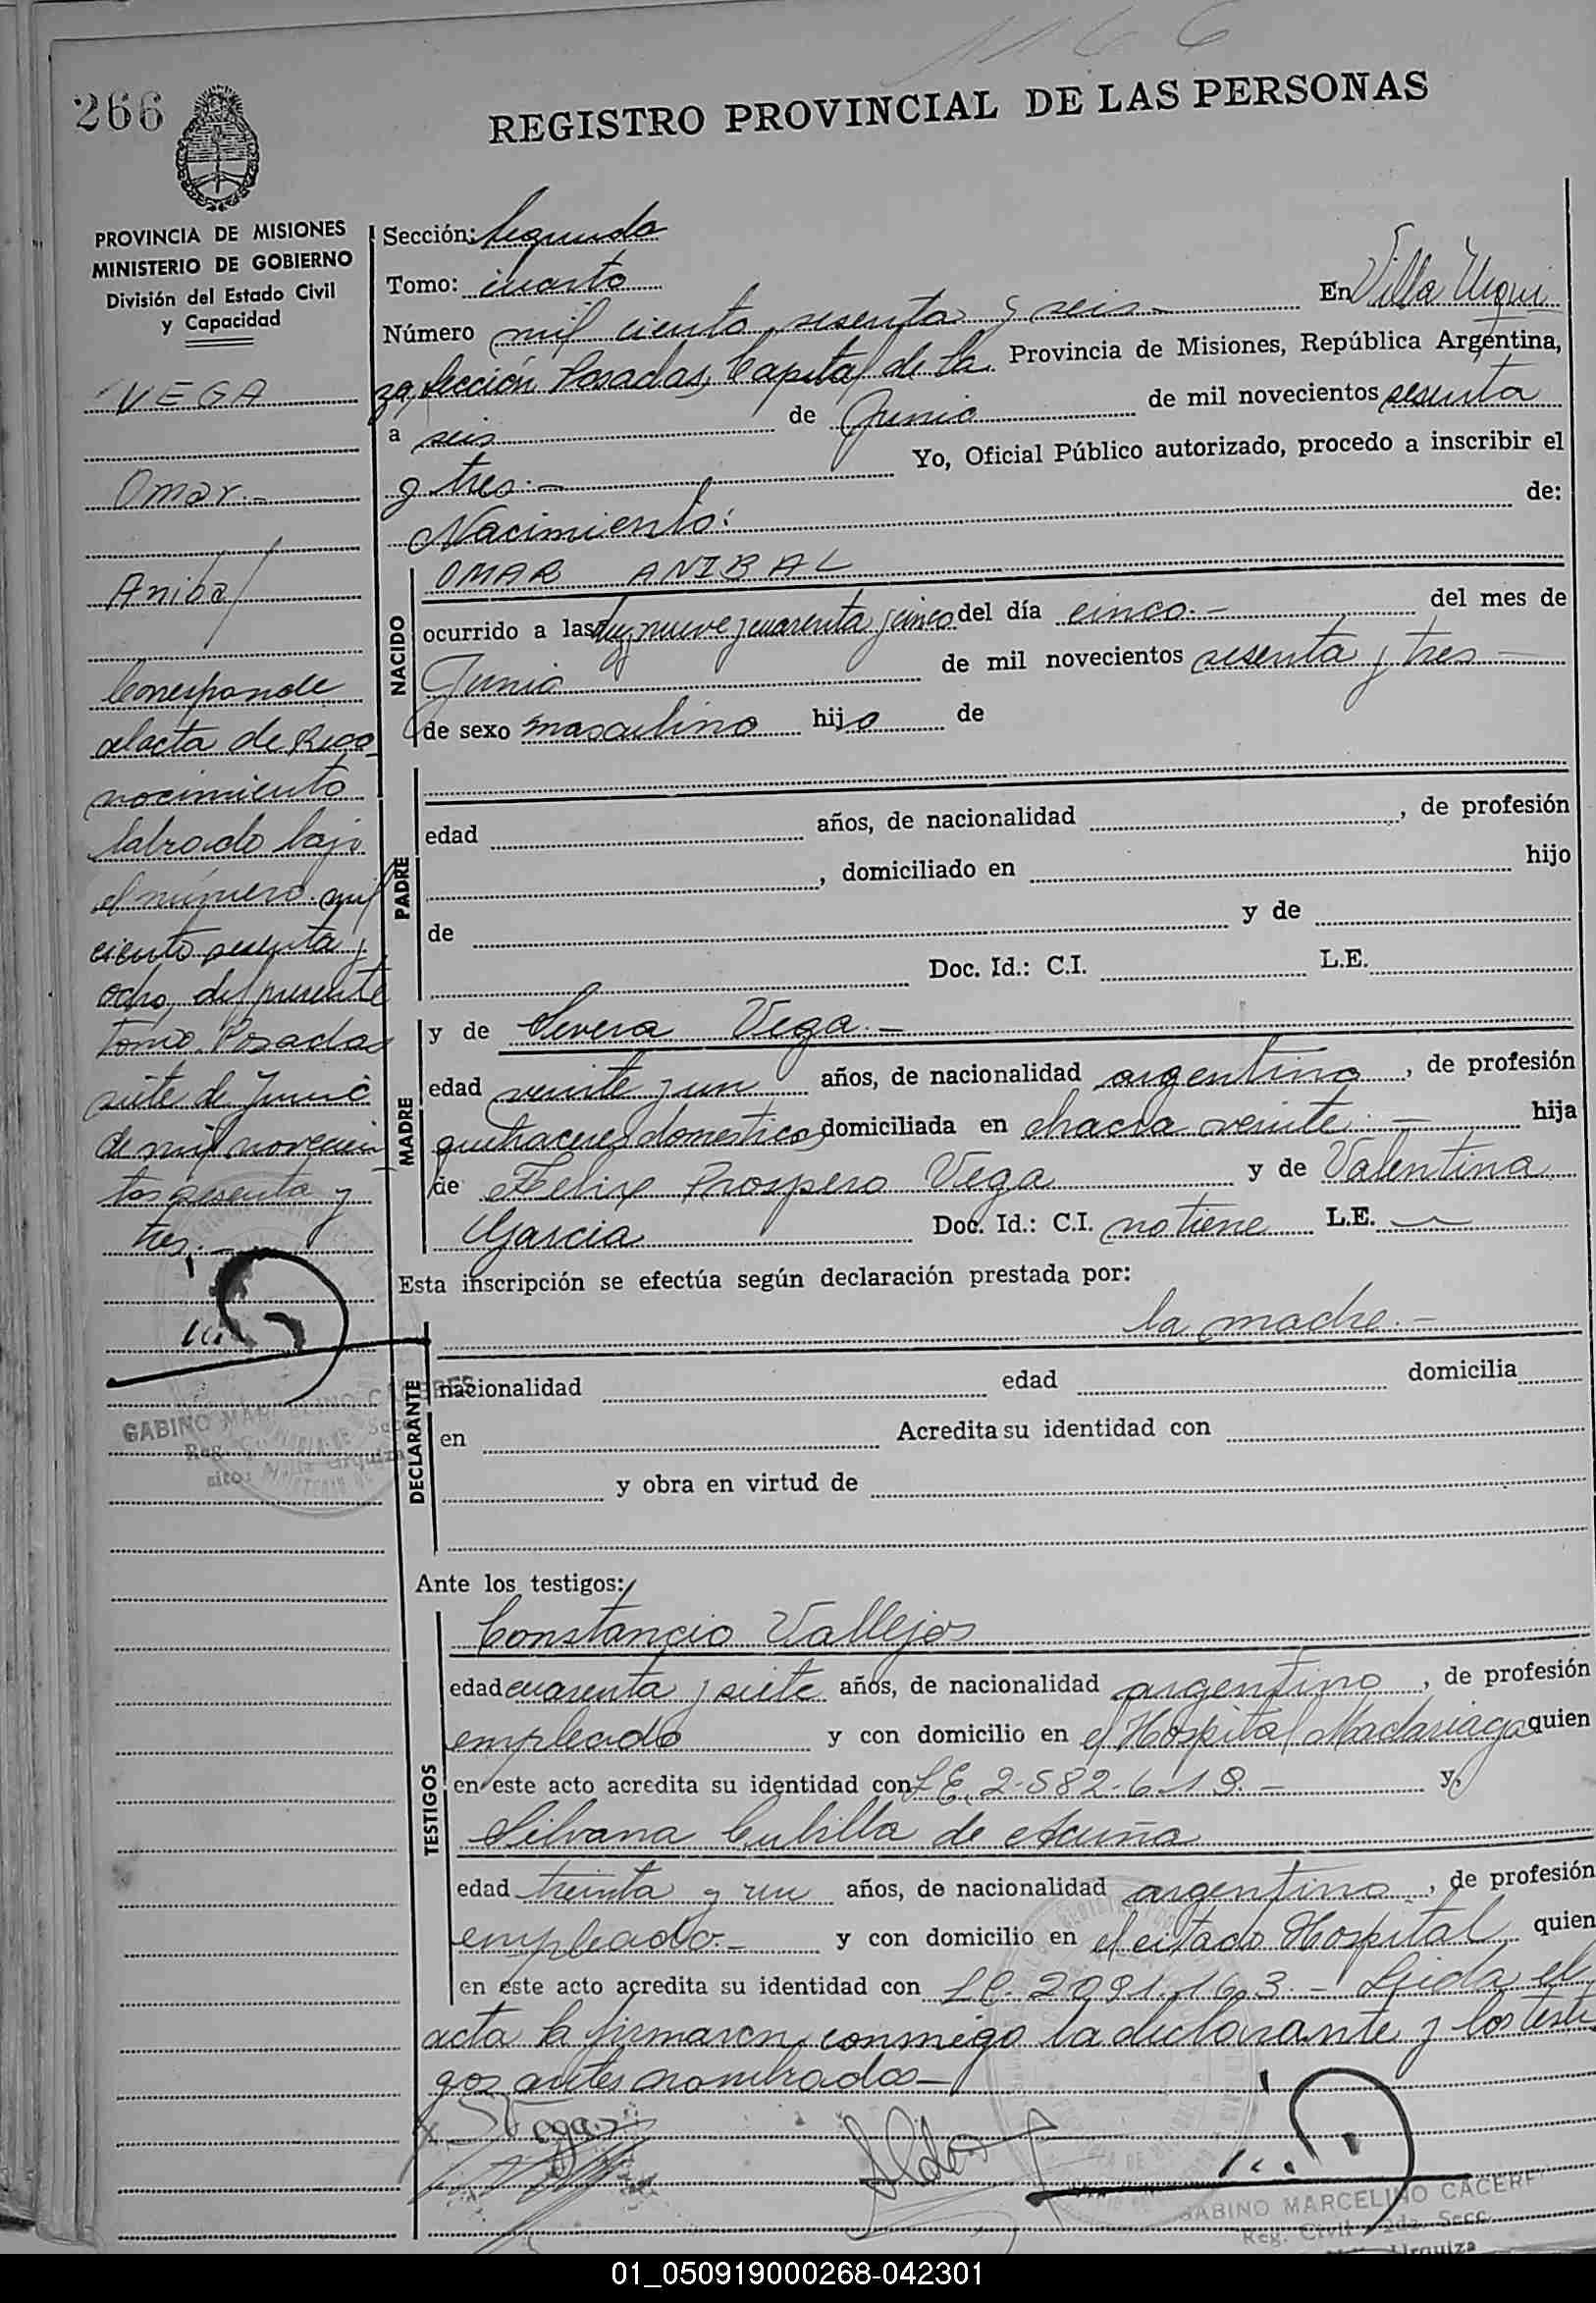 1166
266
REGISTRO PROVINCIAL DE LAS PERSONAS
PROVINCIA DE MISIONES
MINISTERIO DE GOBIERNO
División del Estado Civil
y Capacidad
VEGA
Omar.-
Anibal
Corresponde
al acta de Reco
nocimiento
labrado bajo
el número mil
ciento sesenta y
ocho, del presente
tomo. Posadas
siete de Junio
de mil novecien
tos sesenta y
tres.-
GABINO MARCELINO CACERES
Sección: Segunda
Tomo: cuarto
Número mil ciento sesenta y seis.- En Villa Urqui
za, Sección Posadas, Capital de la Provincia de Misiones, República Argentina,
a seis de Junio de mil novecientos sesenta
y tres.- Yo, Oficial Público autorizado, procedo a inscribir el
Nacimiento: de:
NACIDO
OMAR ANIBAL
ocurrido a las diez nueve y cuarenta y cinco del día cinco.- del mes de
Junio de mil novecientos sesenta y tres-
de sexo masculino hijo de
PADRE
edad años, de nacionalidad , de profesión
, domiciliado en hijo
de y de
Doc. Id.: C.I. L.E.
MADRE
y de Severa Vega.-
edad veinte y un años, de nacionalidad argentina, de profesión
quehaceres domesticos domiciliada en chacra veinte.- hija
de Felix Prospero Vega y de Valentina
Garcia Doc. Id.: C.I. no tiene L.E.
Esta inscripción se efectúa según declaración prestada por:
DECLARANTE
la madre.-
nacionalidad edad domicilia
en Acredita su identidad con
y obra en virtud de
Ante los testigos:
TESTIGOS
Constancio Vallejos
edad cuarenta y siete años, de nacionalidad argentino, de profesión
empleado y con domicilio en el Hospital Madariaga quien
en este acto acredita su identidad con L.E. 2.582.619.- y,
Silvana Cubilla de Acuña
edad treinta y un años, de nacionalidad argentina, de profesión
empleado.- y con domicilio en el citado Hospital quien
en este acto acredita su identidad con L.C. 2091.163.- Leida el
acta la firmaron conmigo la declarante y los testi
gos antes nombrados-
S Vega
GABINO MARCELINO CACERES
Reg. Civil 2da. Secc.
Urquiza
01_050919000268-042301